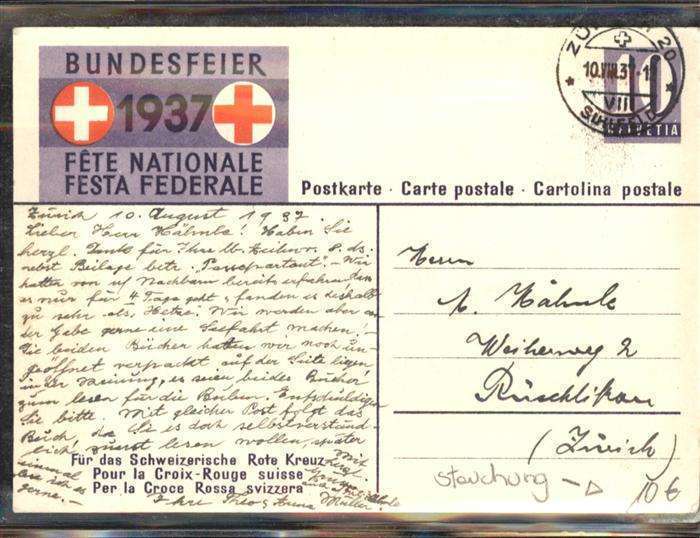 BUNDESFEIER
1937
FÊTE NATIONALE
FESTA FEDERALE
10
HELVETIA
ZÜRICH 20
10.VIII.37
VII
SIHLFELD
Postkarte · Carte postale · Cartolina postale
Zürich 10. August 1937
Lieber Herr Hähnle! Haben Sie
herzl. Dank für Ihre lb. Zeilen v. 8. ds.
nebst Beilage betr. "Passepartout". Wir
hatten von Nachbarn bereits erfahren, dass
es nur für 4 Tage geht, fanden es deshalb
zu sehr als "Hetze". Wir werden aber
der Gabe gerne eine Seefahrt machen!
Die beiden Bücher hatten wir noch un-
geöffnet verpackt auf der Seite liegen
in der Meinung, es seien beides Bücher
zum lesen für die Buben. Entschuldigen
Sie bitte. Mit gleicher Post folgt das
Buch, da Sie es doch selbstverständ-
lich zuerst lesen wollen, später
einmal
gerne.-
Mit
herzl.
Ihre Theo & Müller.
Für das Schweizerische Rote Kreuz
Pour la Croix-Rouge suisse
Per la Croce Rossa svizzera
Herrn
A. Hähnle
Weiherweg 2
Rüschlikon
(Zürich)
Stauchung
10 €